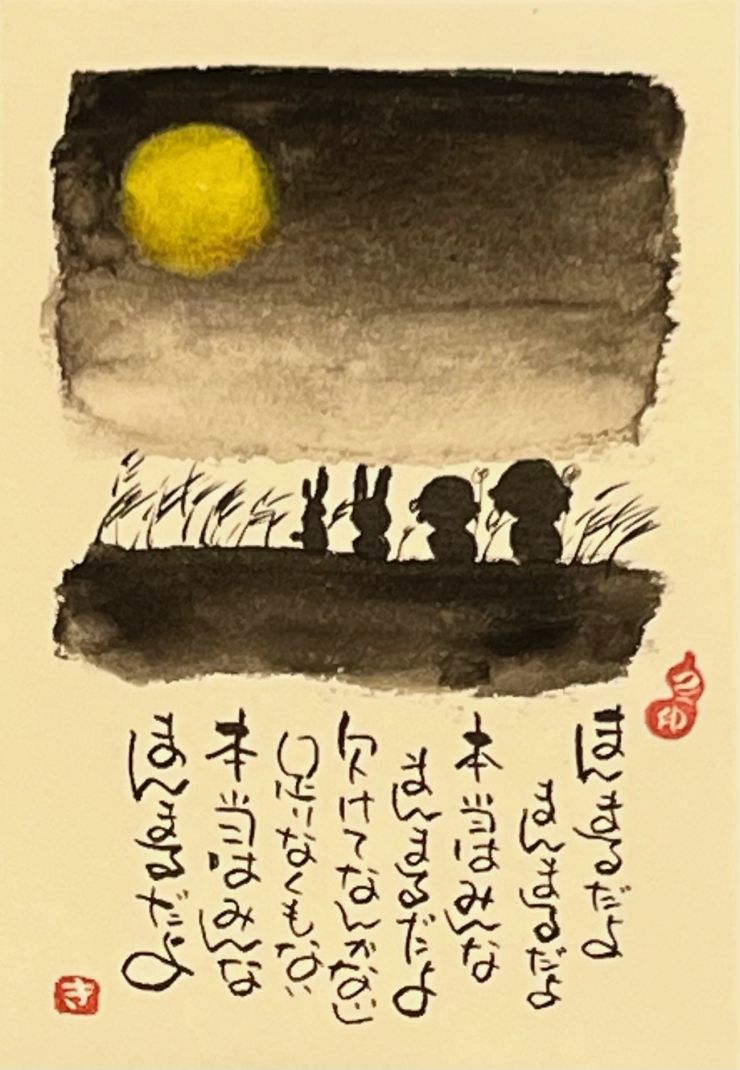 まんまるだよ
まんまるだよ
本当はみんな
まんまるだよ
欠けてなんかない
足りなくもない
本当はみんな
まんまるだよ